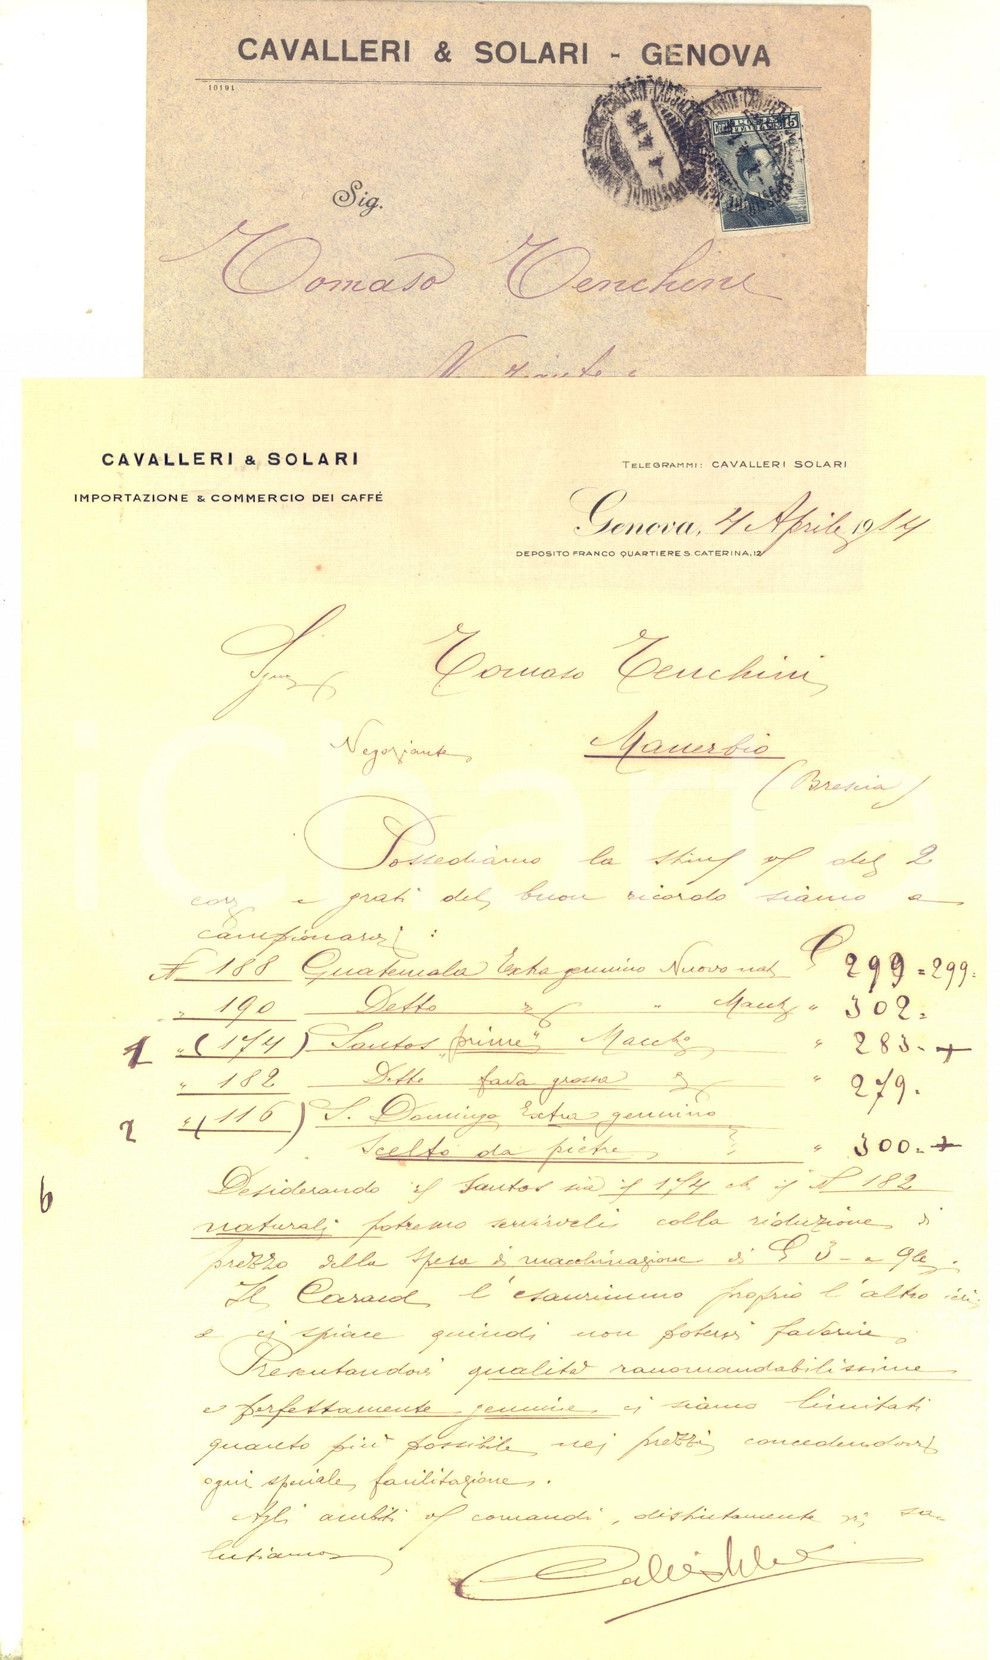 CAVALLERI & SOLARI - GENOVA
10191
Cent. POSTE 15
ITALIANE
Sig.
Tomaso Tenchini
Negoziante
CAVALLERI & SOLARI
IMPORTAZIONE & COMMERCIO DEI CAFFÉ
TELEGRAMMI: CAVALLERI SOLARI
Genova, 4 Aprile 1914
DEPOSITO FRANCO QUARTIERE S. CATERINA, 12
Sigr Tomaso Tenchini
Negoziante Manerbio
(Brescia)
Possediamo la stim/ v/ del 2
corr e grati del buon ricordo siamo a
campionarvi:
N 188 Guatemala Extra genuino Nuovo nat £ 299 = 299.
" 190 Detto " " Macch " 302.
1 " (174) Santos "prime" Macch " 283. +
" 182 Detto fava grossa " " 279.
2 " (116) S. Domingo Extra genuino
scelto da pietre " 300. +
6
Desiderando il Santos sia il 174 che il N 182
naturali potremo servirveli colla riduzione di
prezzo della spesa di macchinazione di £ 3 - a qle.
Il Caracol l'esaurimmo proprio l'altro ieri
e ci spiace quindi non potervi favorire.
Presentandovi qualità raccomandabilissime
e perfettamente genuine ci siamo limitati
quanto più possibile nei prezzi concedendovi
ogni speciale facilitazione.
Agli ambiti v/ comandi, distintamente vi sa-
lutiamo
iCharta